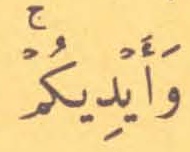 وَأَيْدِيكُمْ ۚ